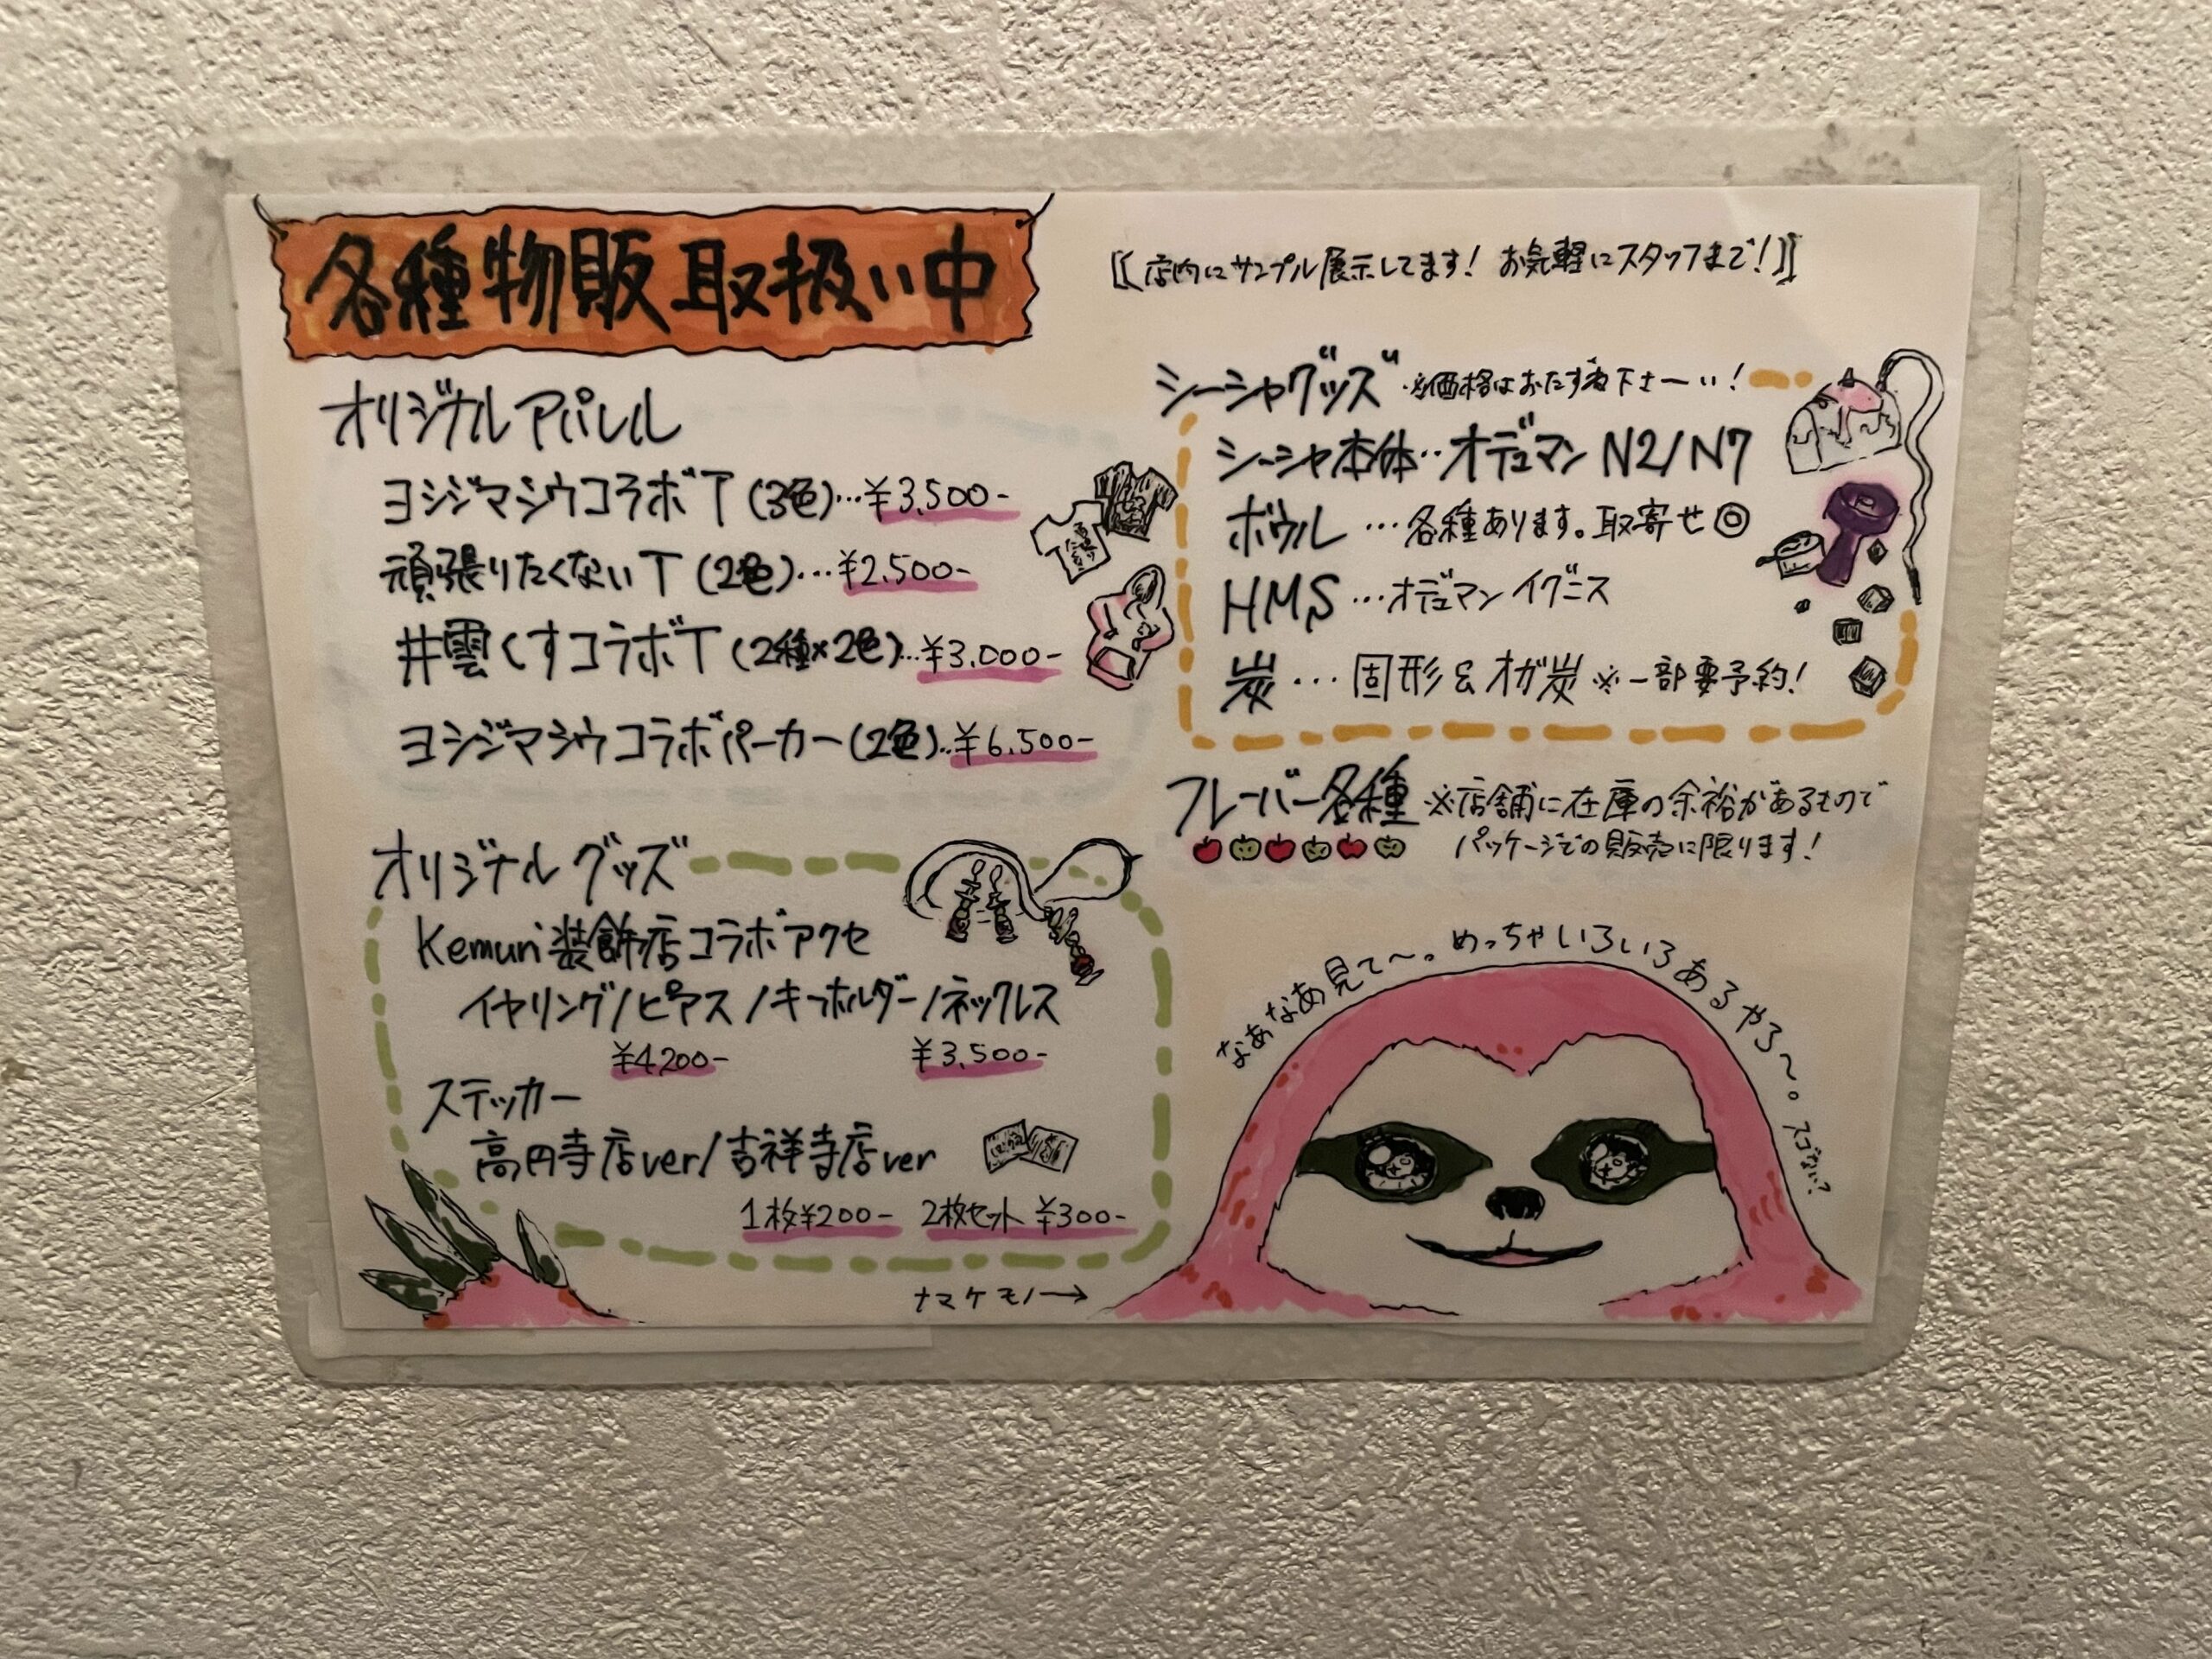 各種物販取扱い中
〚店内にサンプル展示してます! お気軽にスタッフまで!〛
オリジナルアパレル
ヨシジマシウコラボT(3色)…¥3,500-
頑張りたくないT(2色)…¥2,500-
井雲くすコラボT(2種×2色)…¥3,000-
ヨシジマシウコラボパーカー(2色)…¥6,500-
オリジナルグッズ
Kemuri装飾店コラボアクセ
イヤリング/ピアス/キーホルダー/ネックレス
¥4,200- ¥3,500-
ステッカー
高円寺店ver/吉祥寺店ver
1枚¥200- 2枚セット ¥300-
シーシャグッズ ※価格はおたずね下さーい!
シーシャ本体‥オデュマン N2/N7
ボウル …各種あります。取寄せ◎
HMS …オデュマンイグニス
炭 … 固形&オガ炭 ※一部要予約!
フレーバー各種 ※店舗に在庫の余裕があるもので
パッケージでの販売に限ります!
なあなあ見て〜。めっちゃいろいろあるやろ〜。スゴない?
ナマケモノ→